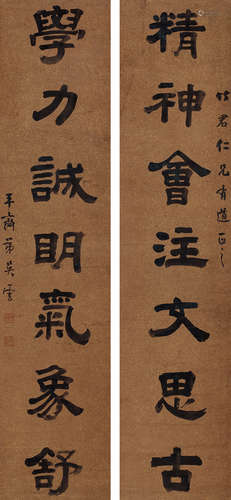 精神會注文思古
竹君仁兄有道正之
學力誠明氣象舒
平齋弟吳雲